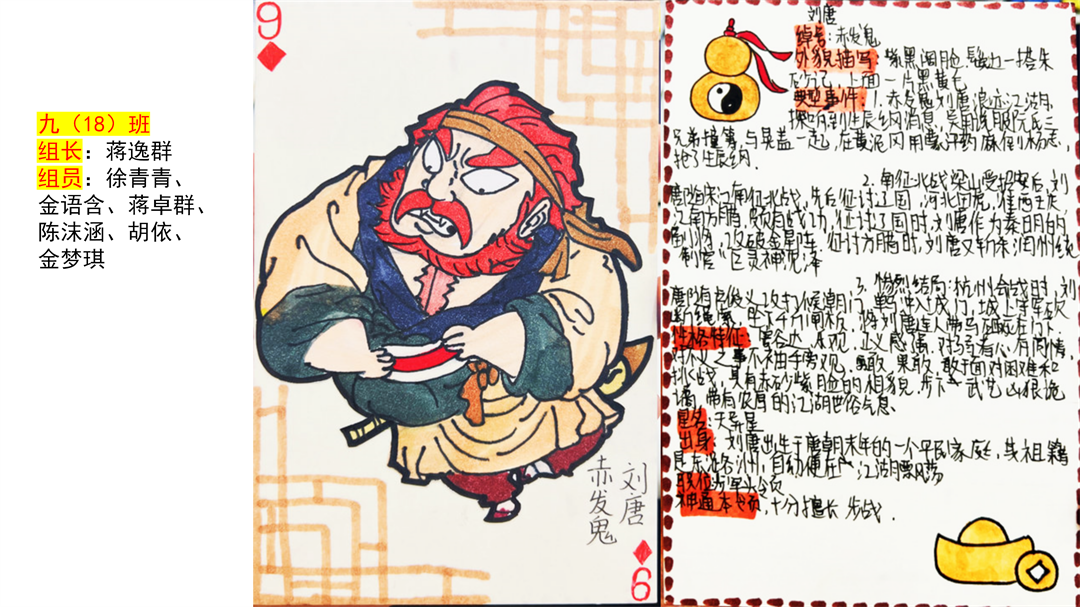 九（18）班
组长：蒋逸群
组员：徐青青、
金语含、蒋卓群、
陈沫涵、胡依、
金梦琪
9
刘唐
赤发鬼
9
刘唐
绰号：赤发鬼
外貌描写：紫黑阔脸，鬓边一搭朱
砂记，上面一片黑黄毛
典型事件：1.赤发鬼刘唐浪迹江湖，
探听到生辰纲消息，与用说服阮氏三
兄弟撞筹，与晁盖一起，在黄泥冈用蒙汗药麻倒杨志，
劫了生辰纲.
2.南征北战 梁山受招安后，刘
唐随宋江南征北战，先后征讨辽国，河北田虎，淮西王庆，
江南方腊，颇有战功，征讨辽国时，刘唐作为秦明的
副将，攻破金星阵，征讨方腊时，刘唐又斩杀润州统
制官"巨灵神"沈泽
3.惨烈结局：杭州会战时，刘
门，城上
性格特征：豁达、乐观，正义感强，对弱者心有同情，
对不义之事不袖手旁观，勇敢 果敢，敢于面对困难和
挑战，具有赤砂紫脸的相貌，武艺凶狠诡
谲，带有浓厚的江湖世俗气息、
星名：天异星
出身：刘唐出生于唐朝末年的一个平民家庭，其祖籍
是东潞州，自幼便在 江湖飘荡
职位：步军头领
神通本领，十分擅长 步战.